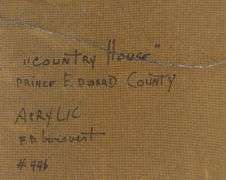 "COUNTRY HOUSE"
PRINCE EDWARD COUNTY
ACRYLIC
#446